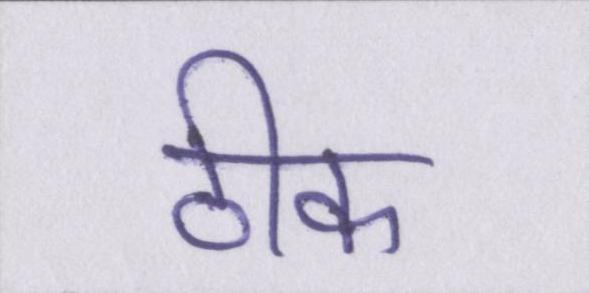 ठीक